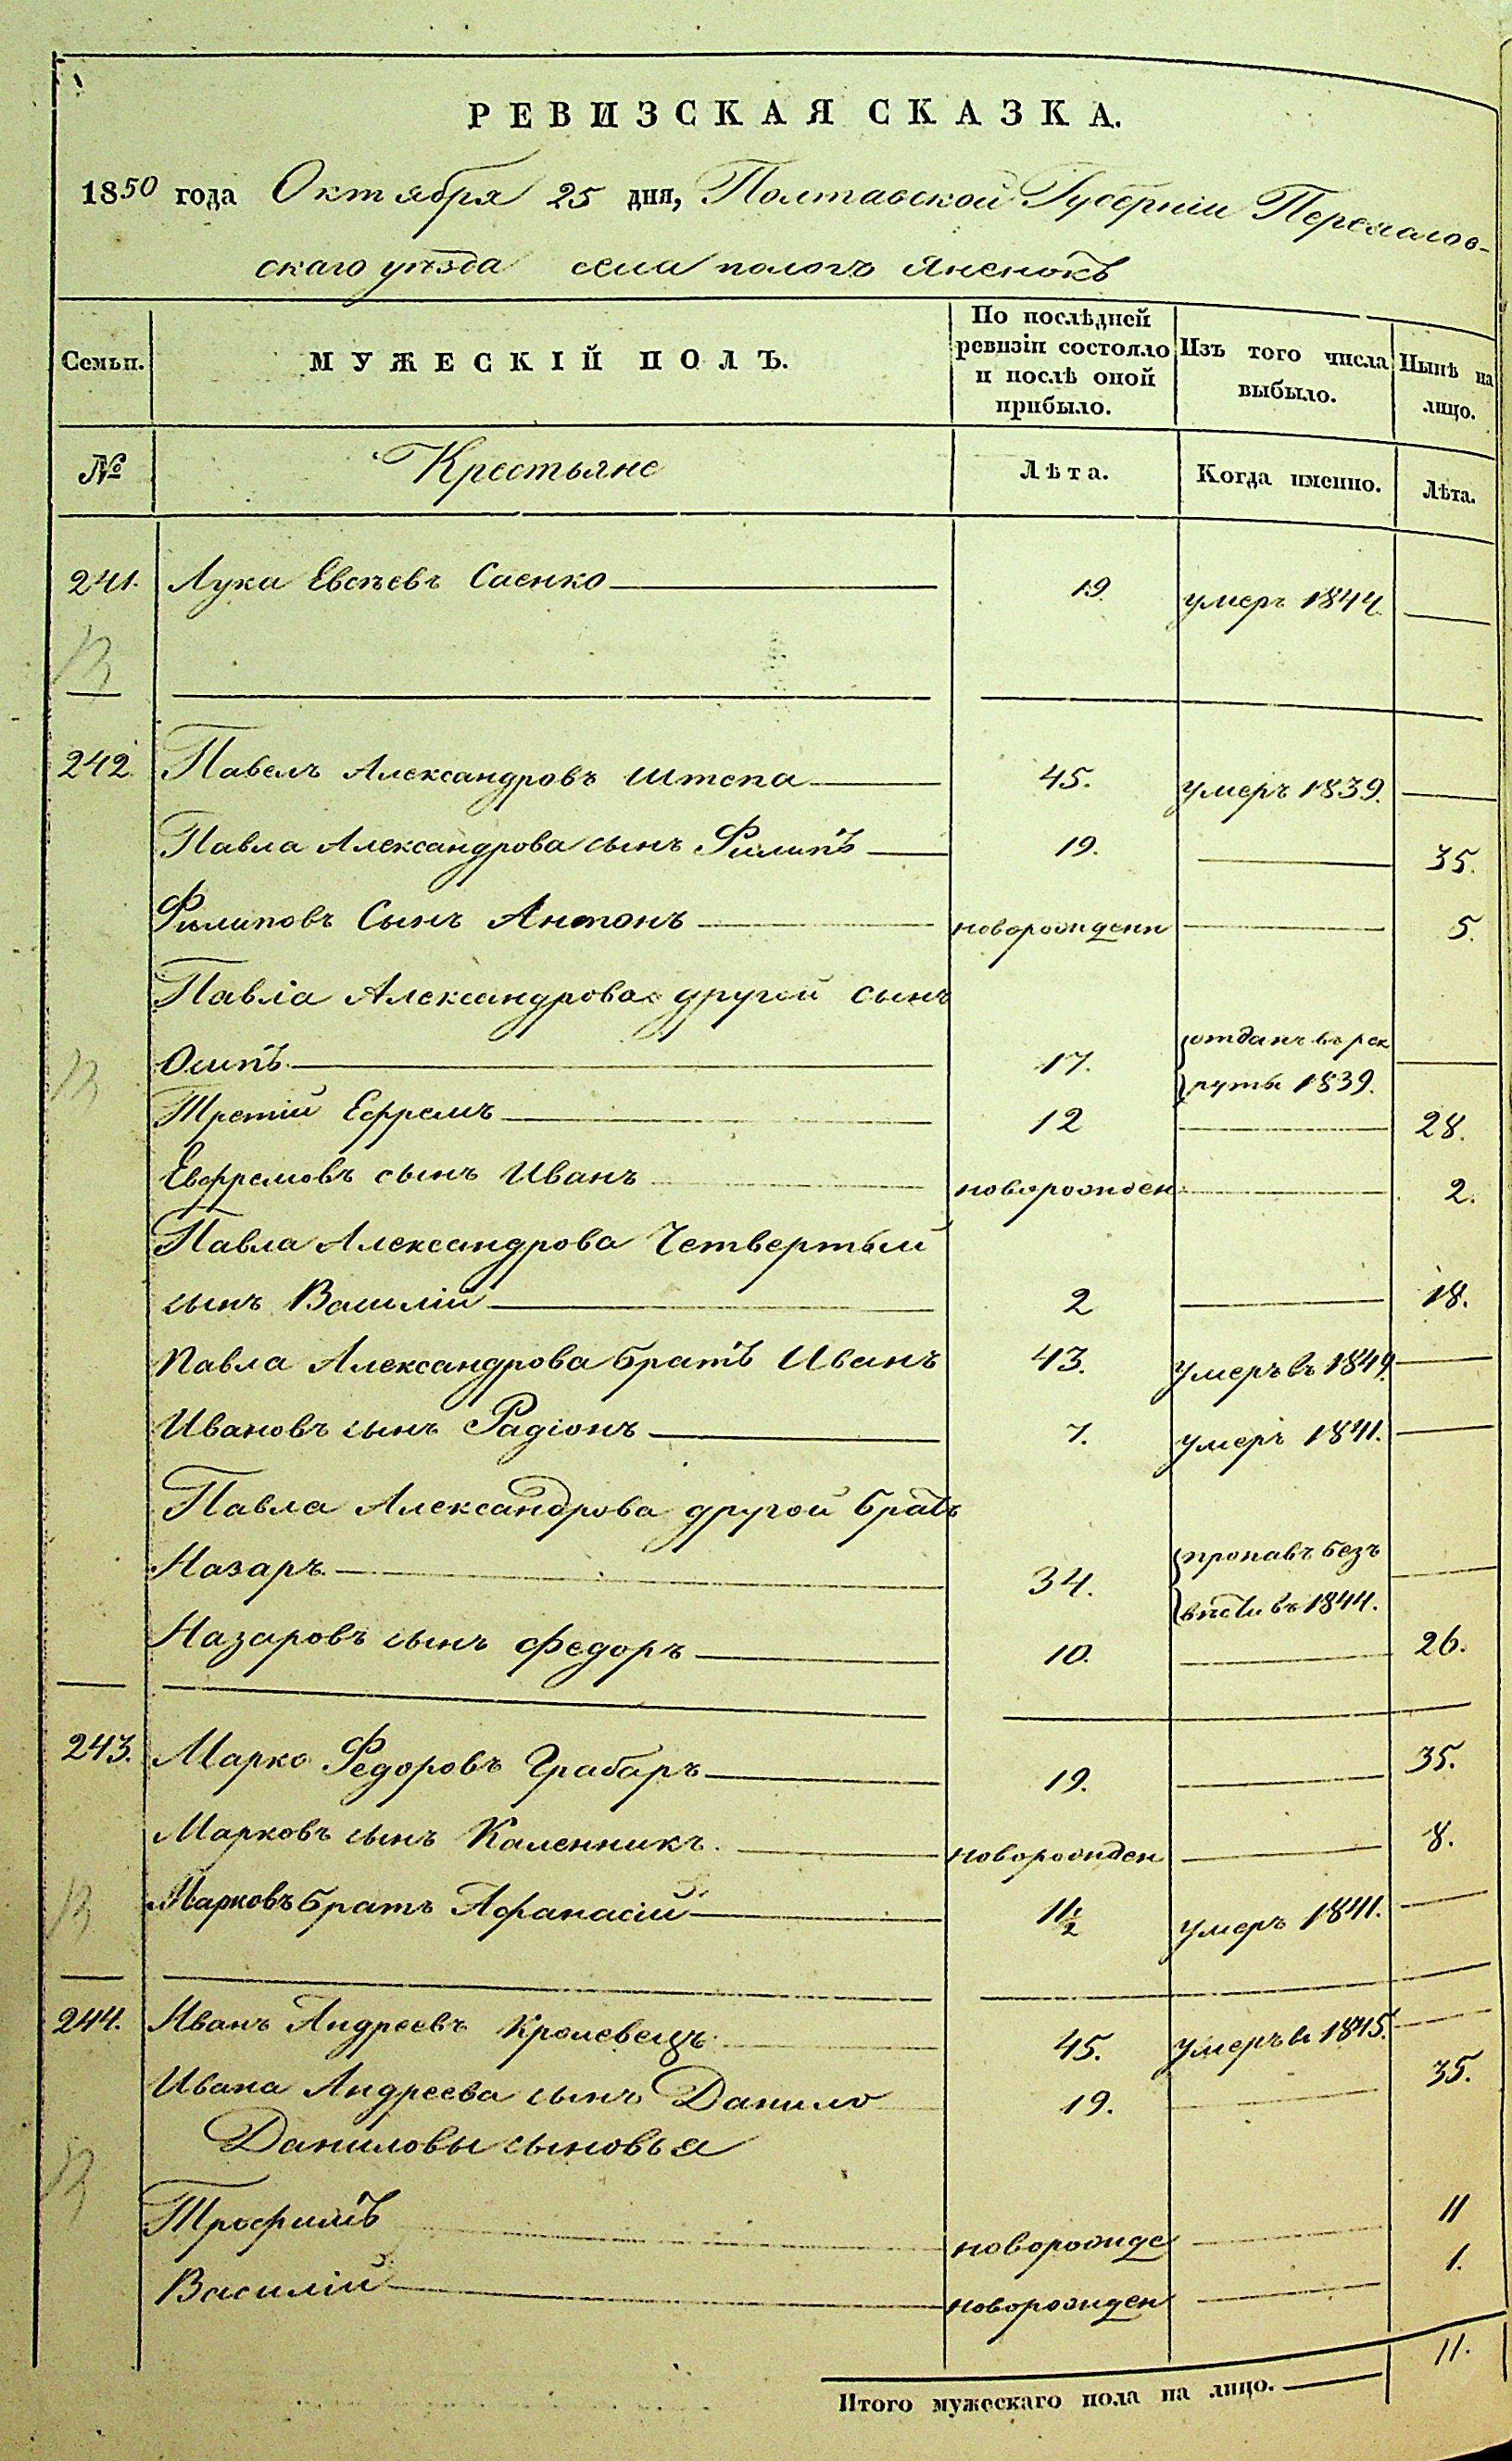 РЕВИЗСКАЯ СКАЗКА.
1850 года Октября 25 дня, Полтавской Губерніи Переяслов-
скаго уѣзда села пологъ Яненокъ
Семьи. МУЖЕСКІЙ ПОЛЪ. По послѣдней ревизіи состояло и послѣ оной прибыло. Изъ того числа выбыло. Нынѣ на лицо.
№ Крестьяне Лѣта. Когда именно. Лѣта.
241. Лука Евсѣевъ Саенко 19. умеръ 1844.
242. Павелъ Александровъ Штепа 45. умеръ 1839.
Павла Александрова сынъ Филипъ 19. 35.
Филиповъ Сынъ Антонъ новорожденн 5.
Павла Александрова другой сынъ
Осипъ 17. отданъ въ рек
руты 1839.
Третій Ефремъ 12 28.
Евфремовъ сынъ Иванъ новорожден 2.
Павла Александрова Четвертый
сынъ Василій 2 18.
Павла Александрова братъ Иванъ 43. умеръ въ 1849.
Ивановъ сынъ Радіонъ 7. умеръ 1841.
Павла Александрова другой братъ
Назаръ 34. пропавъ безъ
вѣсти въ 1844.
Назаровъ сынъ Федоръ 10. 26.
243. Марко Федоровъ Грабаръ 19. 35.
Марковъ сынъ Каленникъ. новорожден 8.
Марковъ братъ Афанасій 11 1/2 умеръ 1841.
244. Иванъ Андреевъ Кролевецъ 45. умеръ в 1845.
Ивана Андреева сынъ Данило 19. 35.
Даниловы сыновья
Трофимъ новорожде 11
Василій новорожден 1.
Итого мужескаго пола на лицо. 11.